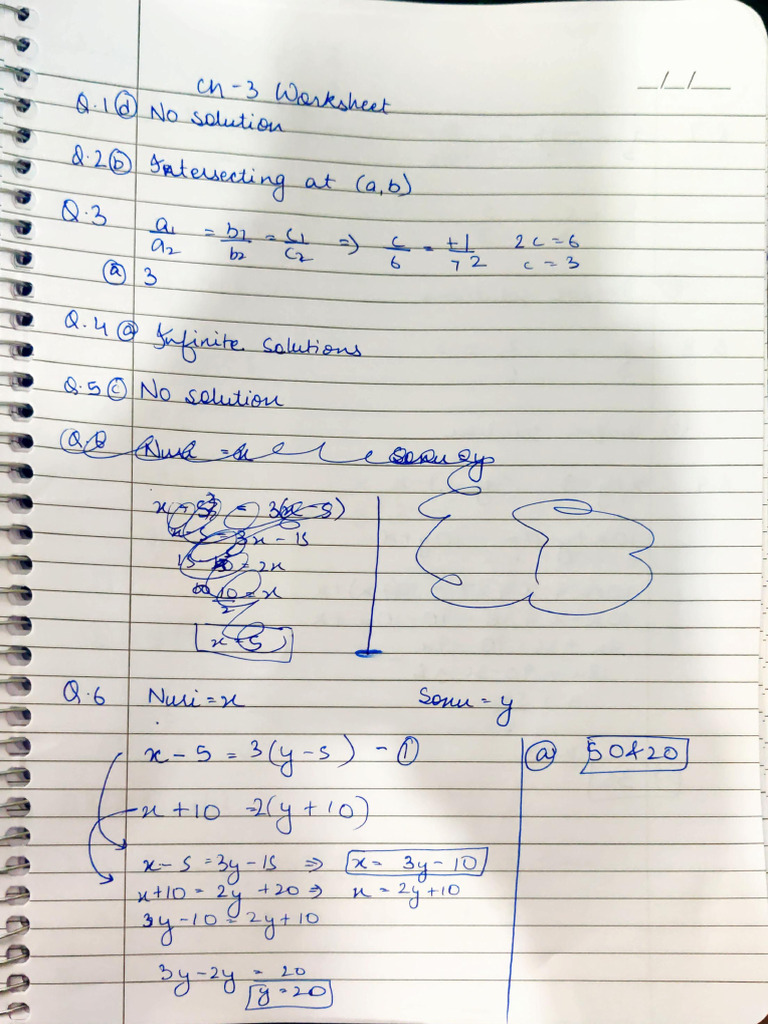 _/_/__
Ch-3 Worksheet
Q.1 (d) No solution
Q.2 (b) Intersecting at (a,b)
Q.3 a1/a2 = b1/b2 = c1/c2 ⇒ c/6 = +1/+2 2c = 6
c = 3
(a) 3
Q.4 (a) Infinite solutions
Q.5 (c) No solution
Nuri = x Sonu y
3x - 15
= 2x
10/2 = x
x = 5
Q.6 Nuri = x Sonu = y
x - 5 = 3(y - 5) - ① (a) 50 & 20
x + 10 = 2(y + 10)
x - 5 = 3y - 15 ⇒ x = 3y - 10
x + 10 = 2y + 20 ⇒ x = 2y + 10
3y - 10 = 2y + 10
3y - 2y = 20
y = 20